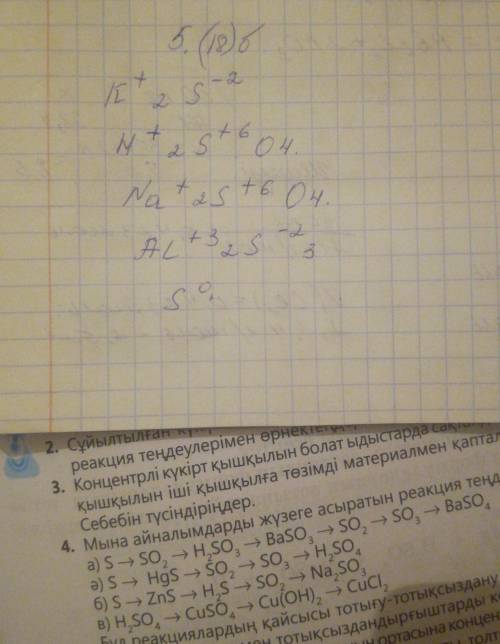 5. (18) б
K⁺₂S⁻²
H⁺₂S⁺⁶O4.
Na⁺₂S⁺⁶O4.
AL⁺³₂S⁻²₃
S⁰.
2. Сұйылтылған
реакция теңдеулерімен
3. Концентрлі күкірт қышқылын болат ыдыстарда
қышқылын іші қышқылға төзімді материалмен
Себебін түсіндіріңдер.
4. Мына айналымдарды жүзеге асыратын реакция
а) S → SO₂ → H₂SO₃ → BaSO₃ → SO₂ → SO₃ → BaSO₄
ә) S → HgS → SO₂ → SO₃ → H₂SO₄
б) S → ZnS → H₂S → SO₂ → Na₂SO₃
в) H₂SO₄ → CuSO₄ → Cu(OH)₂ → CuCl₂
Бұл реакциялардың қайсысы тотығу-тотықсыздану
тотықсыздандырғыштарды